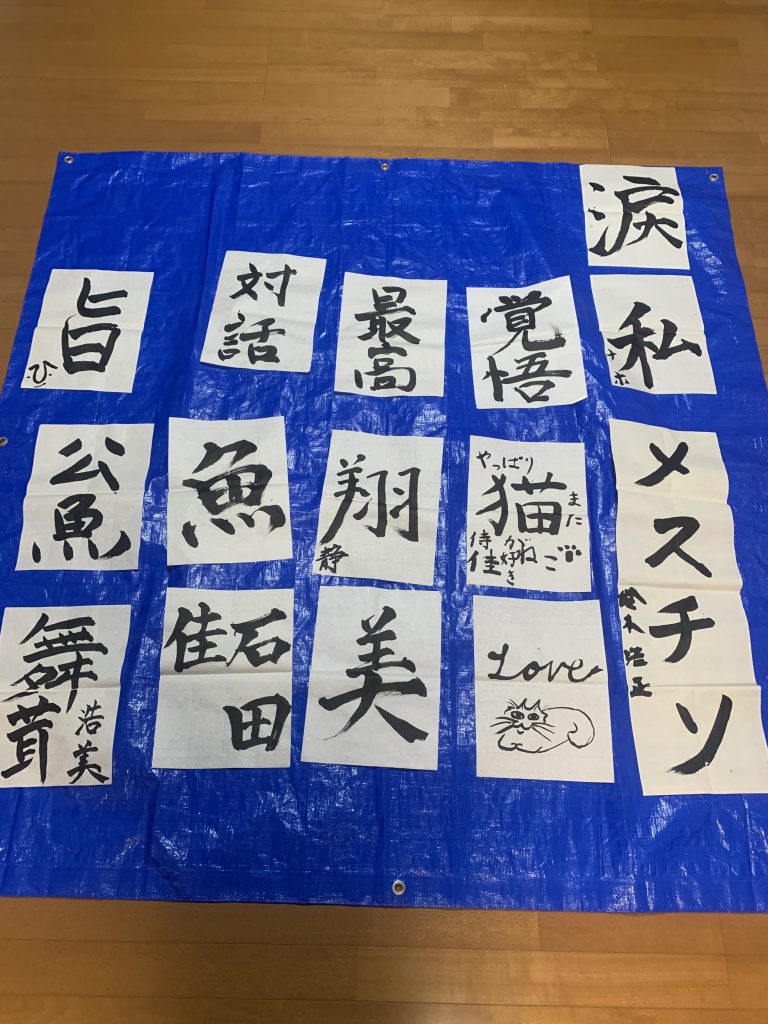 涙
旨
ひ
対話
最高
覚悟
私
ナホ
公魚
魚
翔
静
やっぱり
猫
が好き
また
ねご
メスチソ
鈴木
舞茸
浩美
石田
佳
美
Love